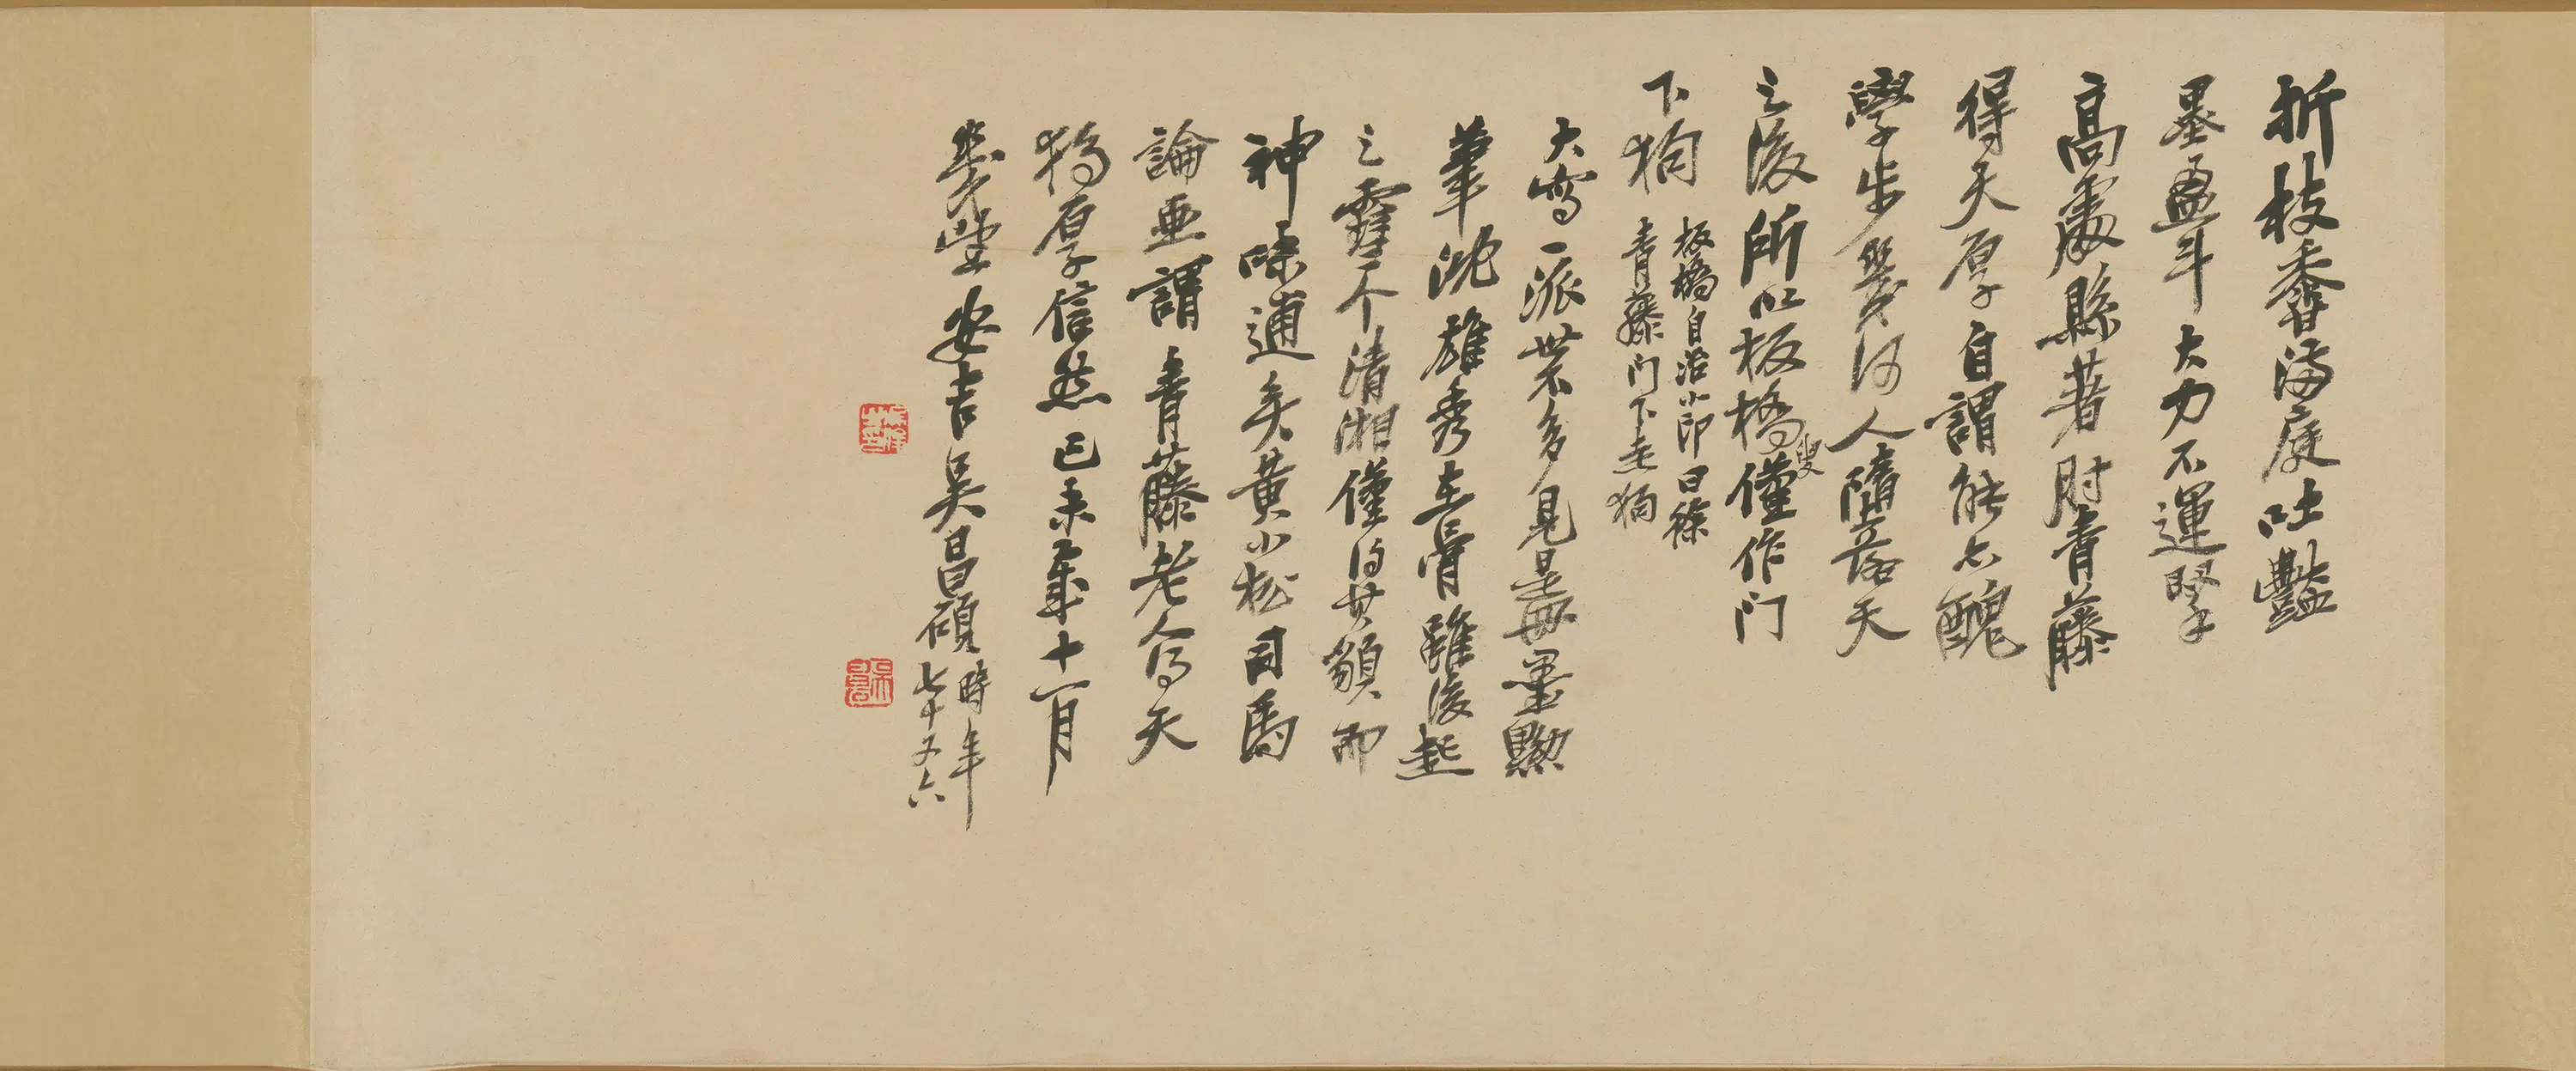 折枝香滿庭吐豔
墨盈斗大力不運擘
高處縣著肘青藤
得天厚自謂能亦醜
學步幾何人隨落天
之後所以板橋叟僅作門
下狗
板橋自治小印曰徐
青藤门下走狗
大寫一派世不多見是冊墨黝
筆沈雄秀在骨雖後起
之雪个清湘僅得其貌而
神味逋矣黃小松司馬
論畫謂青藤老人得天
獨厚信然己未歲十一月
安吉吳昌碩
時年
七十又六